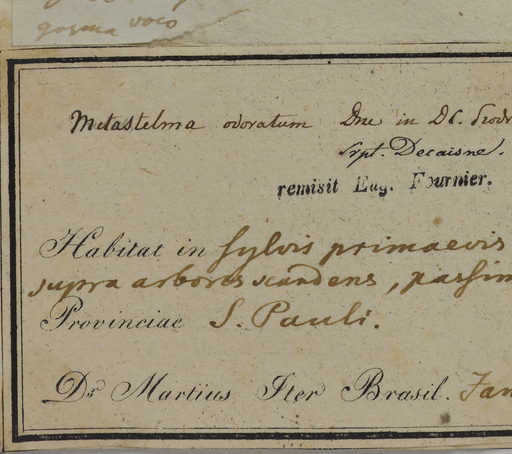 voco
Metastelma odoratum Dne in DC. Prodr
Srpt. Decaisne.
remisit Eug. Fournier.
Habitat in sylvis primaevis
supra arbores scandens, passim
Provinciae S. Pauli.
Dr. Martius Iter Brasil. Jan